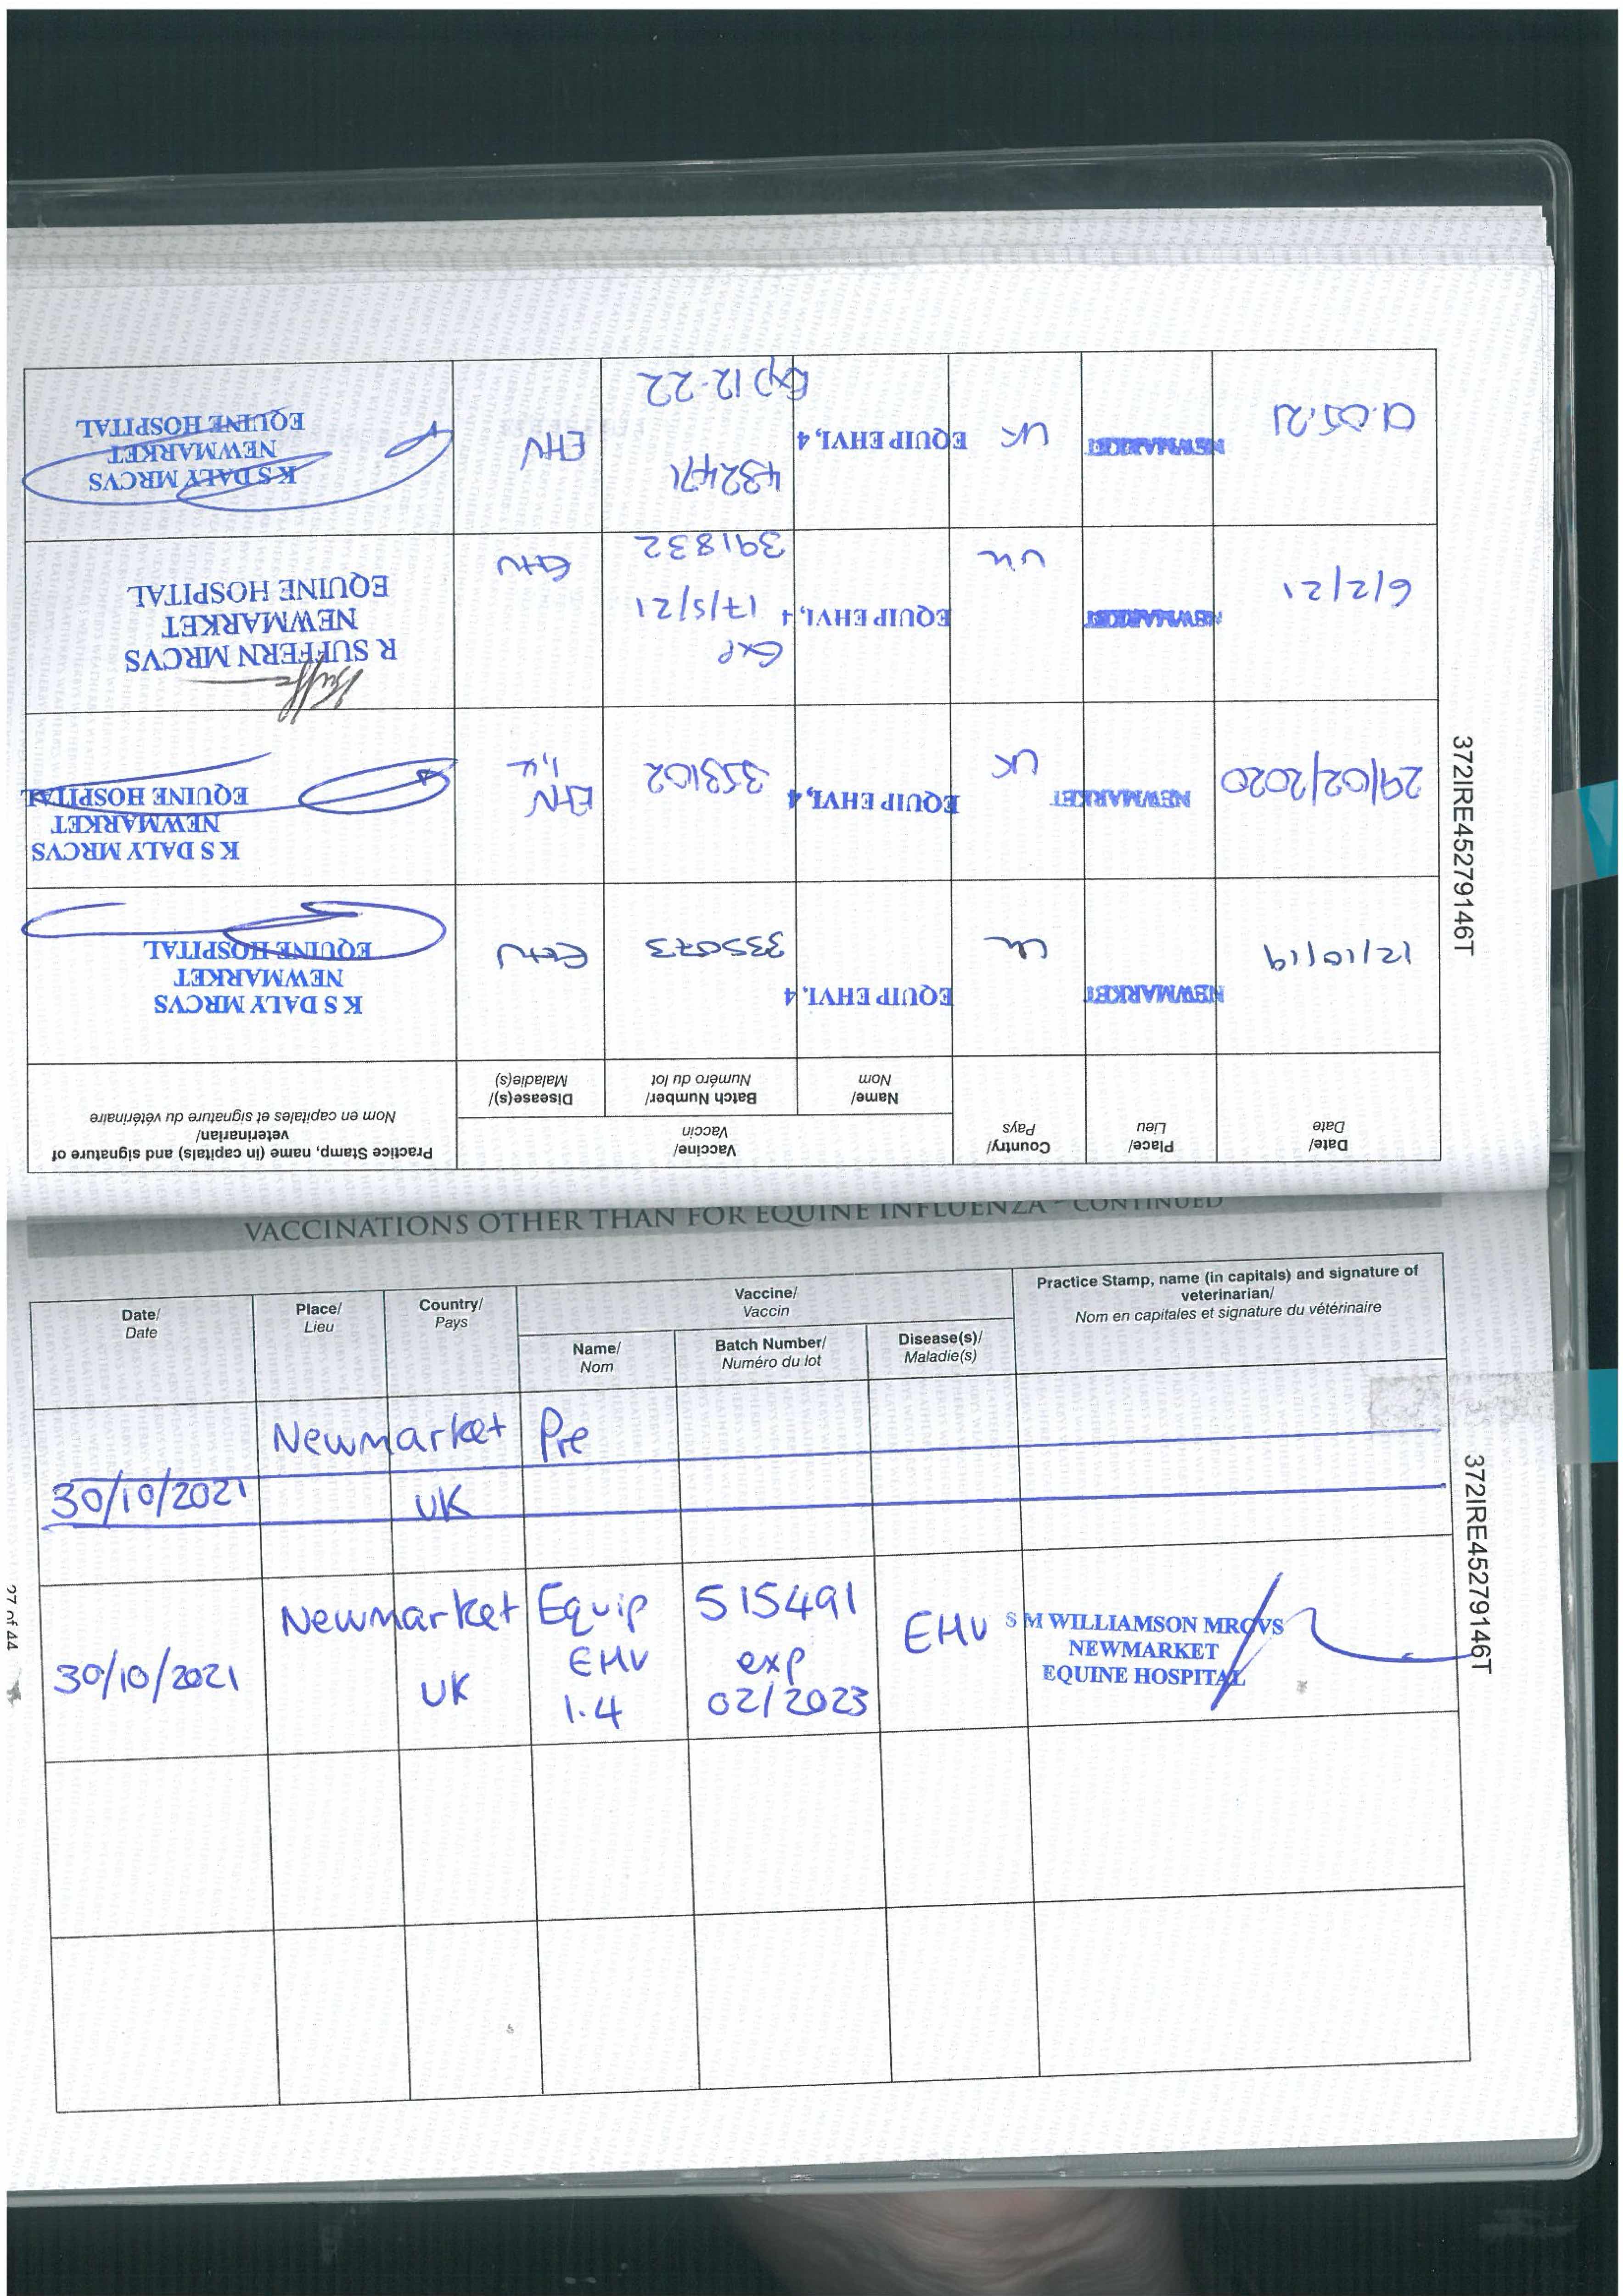 Date/
Date
Place/
Lieu
Country/
Pays
Vaccine/
Vaccin
Name/
Nom
Batch Number/
Numéro du lot
Disease(s)/
Maladie(s)
Practice Stamp, name (in capitals) and signature of
veterinarian/
Nom en capitales et signature du vétérinaire
12/10/19
NEWMARKET
UK
EQUIP EHV1,4
335073
EHV
K S DALY MRCVS
NEWMARKET
EQUINE HOSPITAL
29/02/2020
NEWMARKET
UK
EQUIP EHV1,4
353102
EHV
1,4
K S DALY MRCVS
NEWMARKET
EQUINE HOSPITAL
6/2/21
NEWMARKET
UK
EQUIP EHV1,4
Exp
17/5/21
391832
EHV
R SUFFERN MRCVS
NEWMARKET
EQUINE HOSPITAL
NEWMARKET
UK
EQUIP EHV1,4
432471
Exp 12-22
EHV
K S DALY MRCVS
NEWMARKET
EQUINE HOSPITAL
372IRE45279146T
VACCINATIONS OTHER THAN FOR EQUINE INFLUENZA - CONTINUED
Date/
Date
Place/
Lieu
Country/
Pays
Vaccine/
Vaccin
Name/
Nom
Batch Number/
Numéro du lot
Disease(s)/
Maladie(s)
Practice Stamp, name (in capitals) and signature of
veterinarian/
Nom en capitales et signature du vétérinaire
30/10/2021
Newmarket
UK
Pre
30/10/2021
Newmarket
UK
Equip
EHV
1.4
515491
exp
02/2023
EHV
S M WILLIAMSON MRCVS
NEWMARKET
EQUINE HOSPITAL
372IRE45279146T
27 of 44